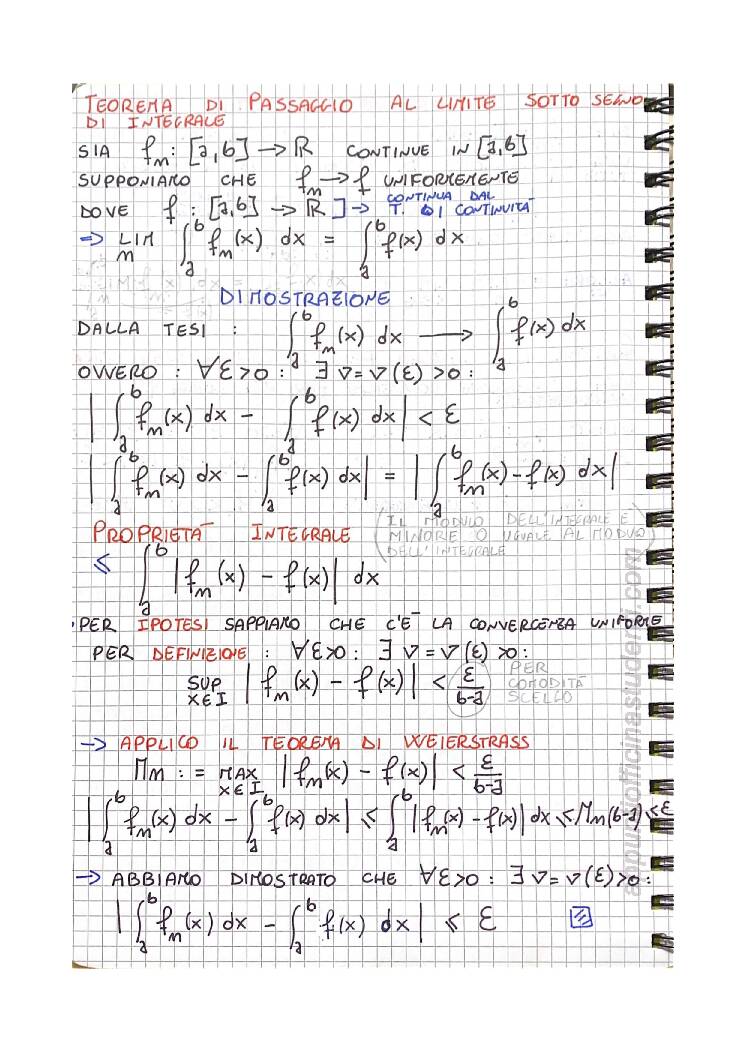 TEOREMA DI PASSAGGIO AL LIMITE SOTTO SEGNO
DI INTEGRALE
SIA fₘ : [a,b] → ℝ CONTINUE IN [a,b]
SUPPONIAMO CHE fₘ → f UNIFORMEMENTE
DOVE f : [a,b] → ℝ ] → CONTINUA DAL
T. DI CONTINUITÀ
⇒ LIM_m ∫_a^b fₘ(x) dx = ∫_a^b f(x) dx
DIMOSTRAZIONE
DALLA TESI : ∫_a^b fₘ(x) dx ⟶ ∫_a^b f(x) dx
OVVERO : ∀ε>0 : ∃ ν=ν(ε)>0 :
|∫_a^b fₘ(x) dx - ∫_a^b f(x) dx| < ε
|∫_a^b fₘ(x) dx - ∫_a^b f(x) dx| = |∫_a^b fₘ(x)-f(x) dx|
PROPRIETÀ INTEGRALE (IL MODULO DELL'INTEGRALE È
MINORE O UGUALE AL MODUO
DELL'INTEGRALE)
≤ ∫_a^b |fₘ(x) - f(x)| dx
• PER IPOTESI SAPPIAMO CHE C'È LA CONVERGENZA UNIFORME
PER DEFINIZIONE : ∀ε>0 : ∃ ν=ν(ε)>0 :
SUP_{x∈I} |fₘ(x) - f(x)| < ε/(b-a) PER
COMODITÀ
SCELGO
→ APPLICO IL TEOREMA DI WEIERSTRASS
Mₘ := MAX_{x∈I} |fₘ(x) - f(x)| < ε/(b-a)
|∫_a^b fₘ(x) dx - ∫_a^b f(x) dx| ≤ ∫_a^b |fₘ(x)-f(x)| dx ≤ Mₘ(b-a) ≤ ε
→ ABBIAMO DIMOSTRATO CHE ∀ε>0 : ∃ ν=ν(ε)>0 :
|∫_a^b fₘ(x) dx - ∫_a^b f(x) dx| ≤ ε
appuntiofficinastudenti.com